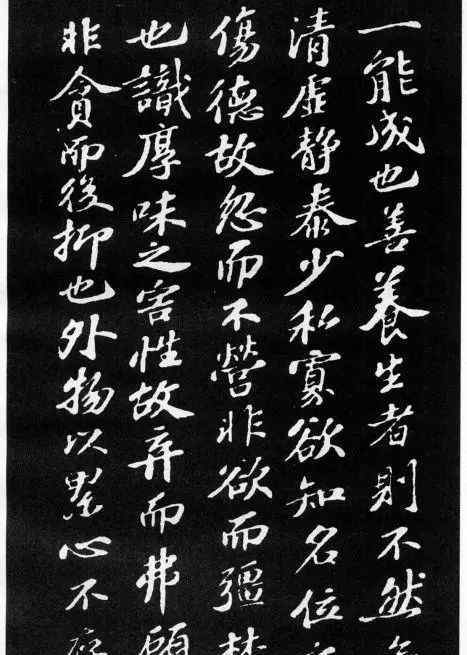 一能成也善養生者則不然
清虛静泰少私寡欲知名位
傷德故忽而不營非欲而彊
也識厚味之害性故弃而弗顧
非貪而後抑也外物以累心不